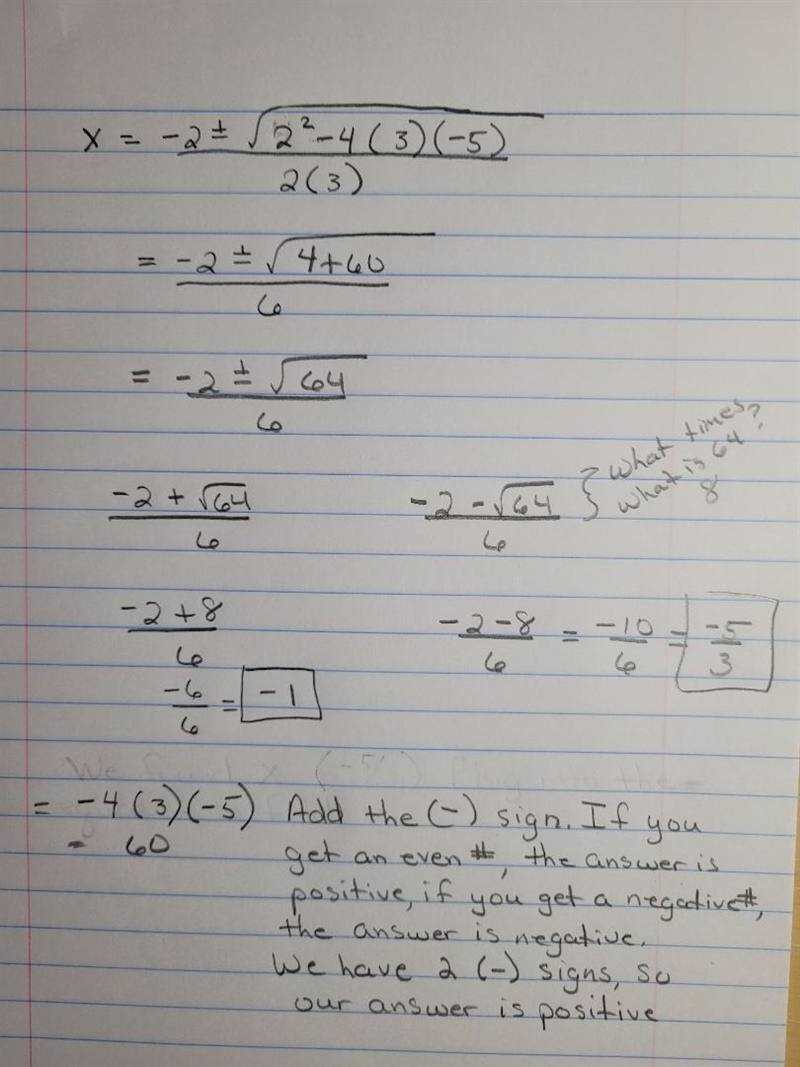 x = -2 ± √2² - 4(3)(-5)
2(3)
= -2 ± √4+60
6
= -2 ± √64
6
-2 + √64
6
-2 - √64
6
} what times
what is 64?
8
-2 + 8
6
-6
6
= -1
-2 - 8
6
= -10
6
= -5
3
= -4(3)(-5) Add the (-) sign. If you
= 60 get an even #, the answer is
positive, if you get a negative #,
the answer is negative.
We have 2 (-) signs, so
our answer is positive